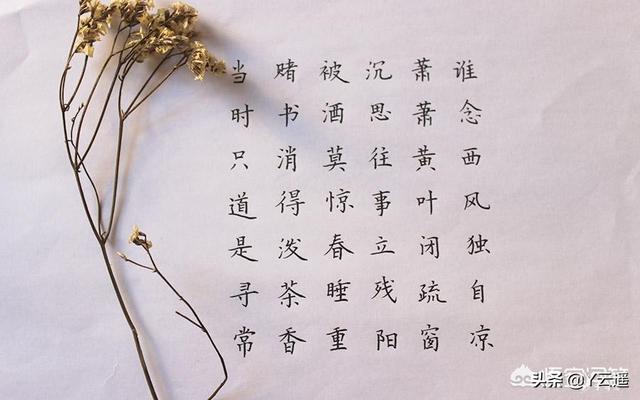 谁念西风独自凉
萧萧黄叶闭疏窗
沉思往事立残阳
被酒莫惊春睡重
赌书消得泼茶香
当时只道是寻常
头条@Y云遥